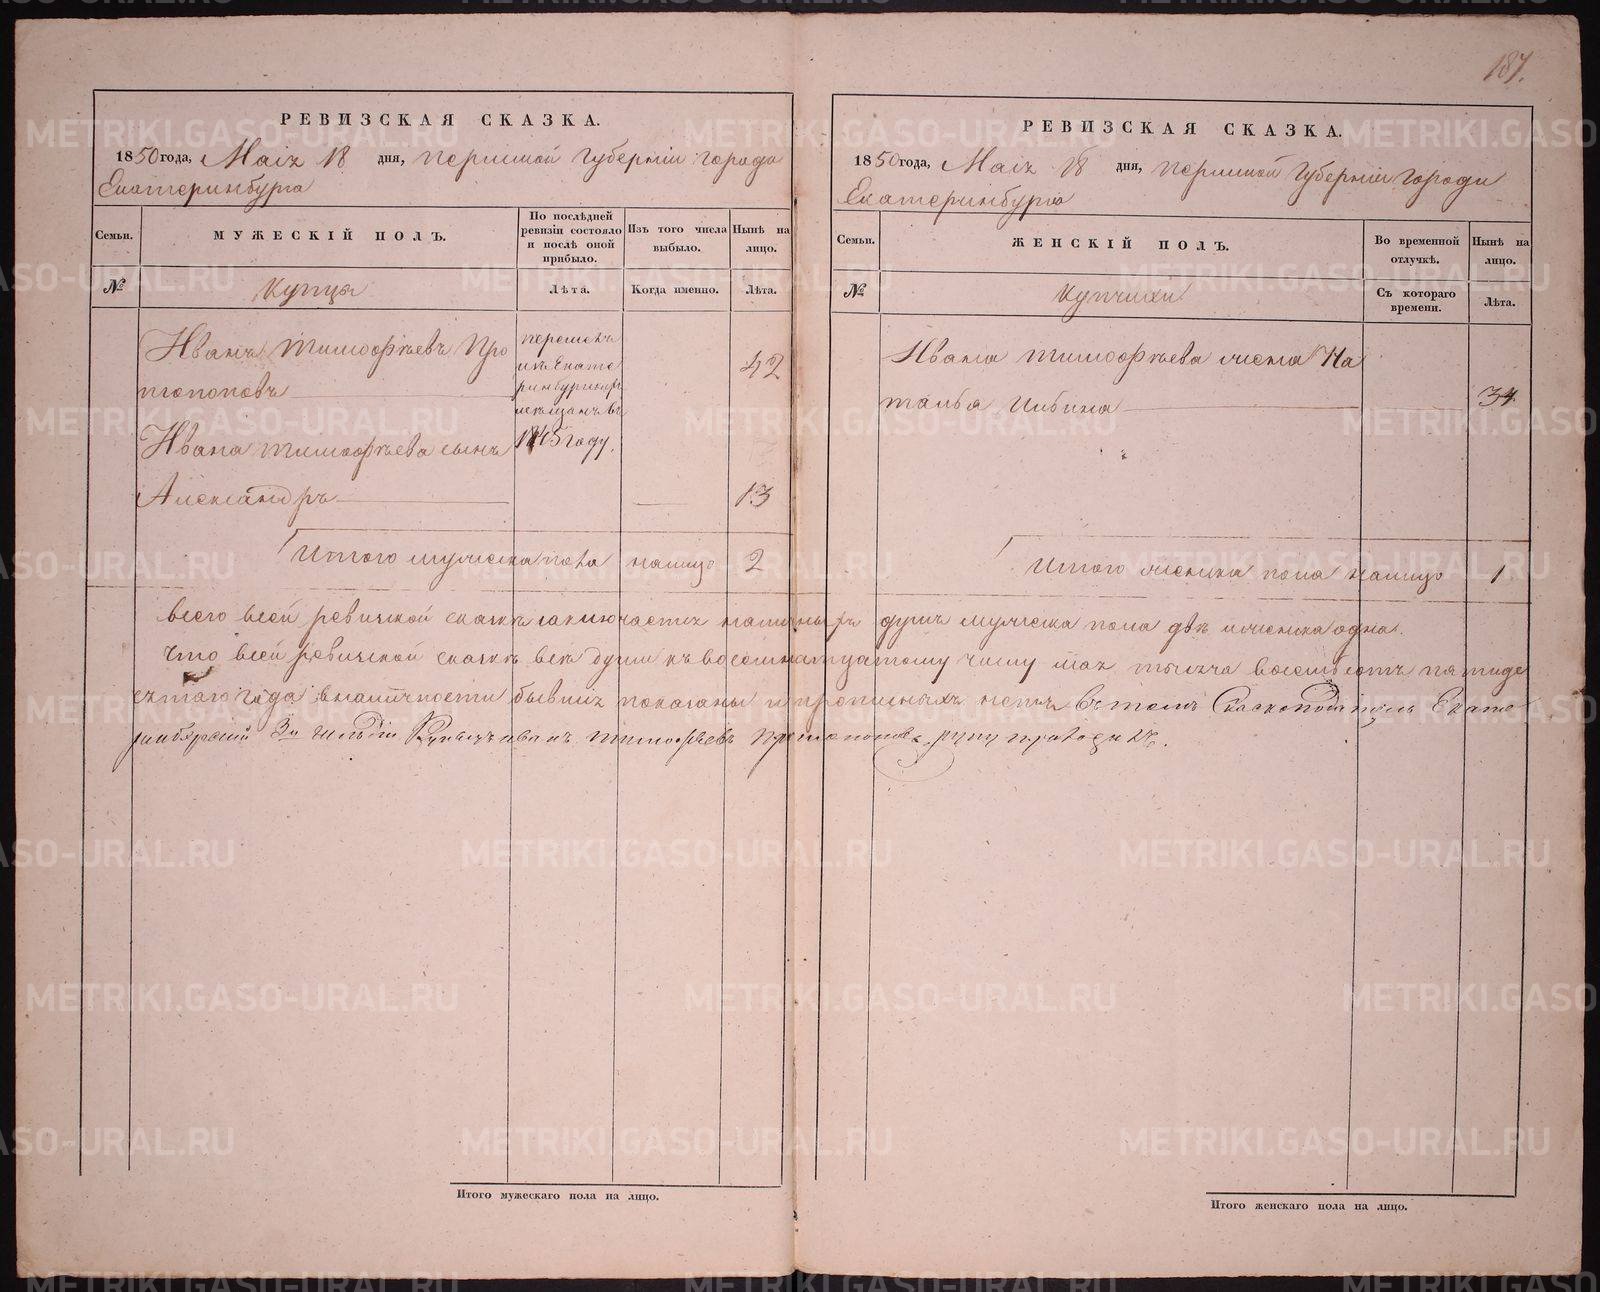 187.
РЕВИЗСКАЯ СКАЗКА.
1850 года, Маія 18 дня, Пермской Губерніи города
Екатеринбурга
Семьи.
МУЖЕСКІЙ ПОЛЪ.
По послѣдней ревизіи состояло и послѣ оной прибыло.
Изъ того числа выбыло.
Нынѣ на лицо.
№
Купцы
Лѣта.
Когда именно.
Лѣта.
Иванъ Тимофѣевъ Про
топоповъ
перешелъ
изъ Екате
ринбургскихъ
мѣщанъ въ
1845 году.
42
Ивана Тимофѣева сынъ
Александръ
13
Итого мужеска пола налицо 2
РЕВИЗСКАЯ СКАЗКА.
1850 года, Маія 18 дня, Пермской Губерніи города
Екатеринбурга
Семьи.
ЖЕНСКІЙ ПОЛЪ.
Во временной отлучкѣ.
Нынѣ на лицо.
№
Купчихи
Съ котораго времени.
Лѣта.
Ивана Тимофѣева жена На
талья Ильина
34
Итого женска пола налицо 1
Всего всей ревизской сказкѣ заключается наличныхъ душъ мужеска пола двѣ и женска одна.
Что всей ревизской сказкѣ всѣ души къ восемнатцатому числу мая тысяча восемьсотъ пятиде
сятаго года вналичности бывшіе показаны и прописныхъ нетъ Въ томъ Сказкоподатель Екате
ринбургскій 3й гильдіи Купецъ Иванъ Тимофѣевъ Протопоповъ руку приложилъ.
Итого мужескаго пола на лицо.
Итого женскаго пола на лицо.
METRIKI.GASO-URAL.RU